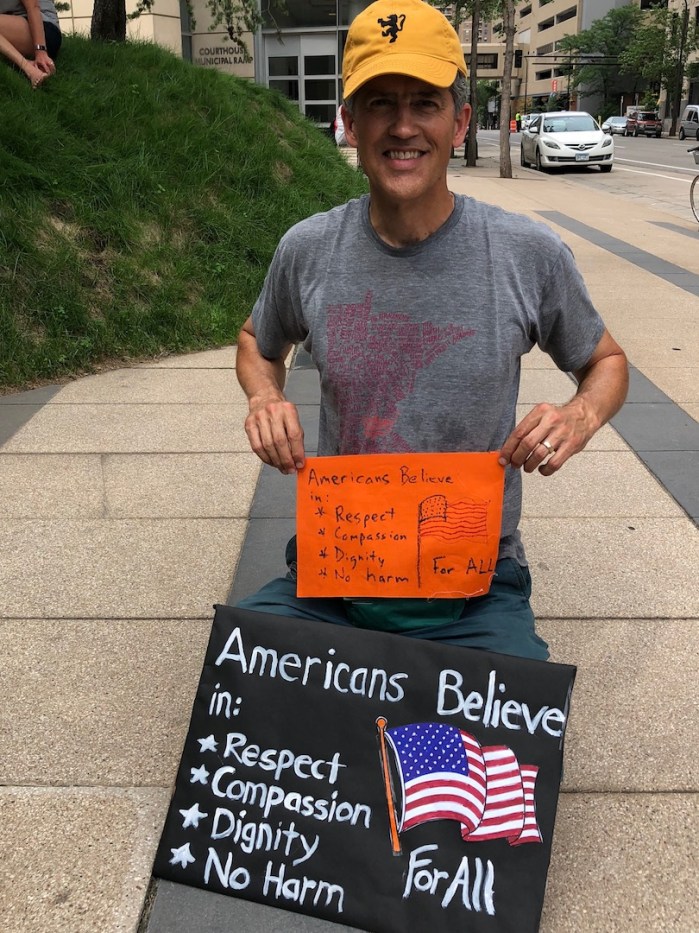 COURTHOUSE
MUNICIPAL RAMP
Americans Believe
in:
* Respect
* Compassion
* Dignity
* No harm
For ALL
Americans Believe
in:
Respect
Compassion
Dignity
No Harm
For All